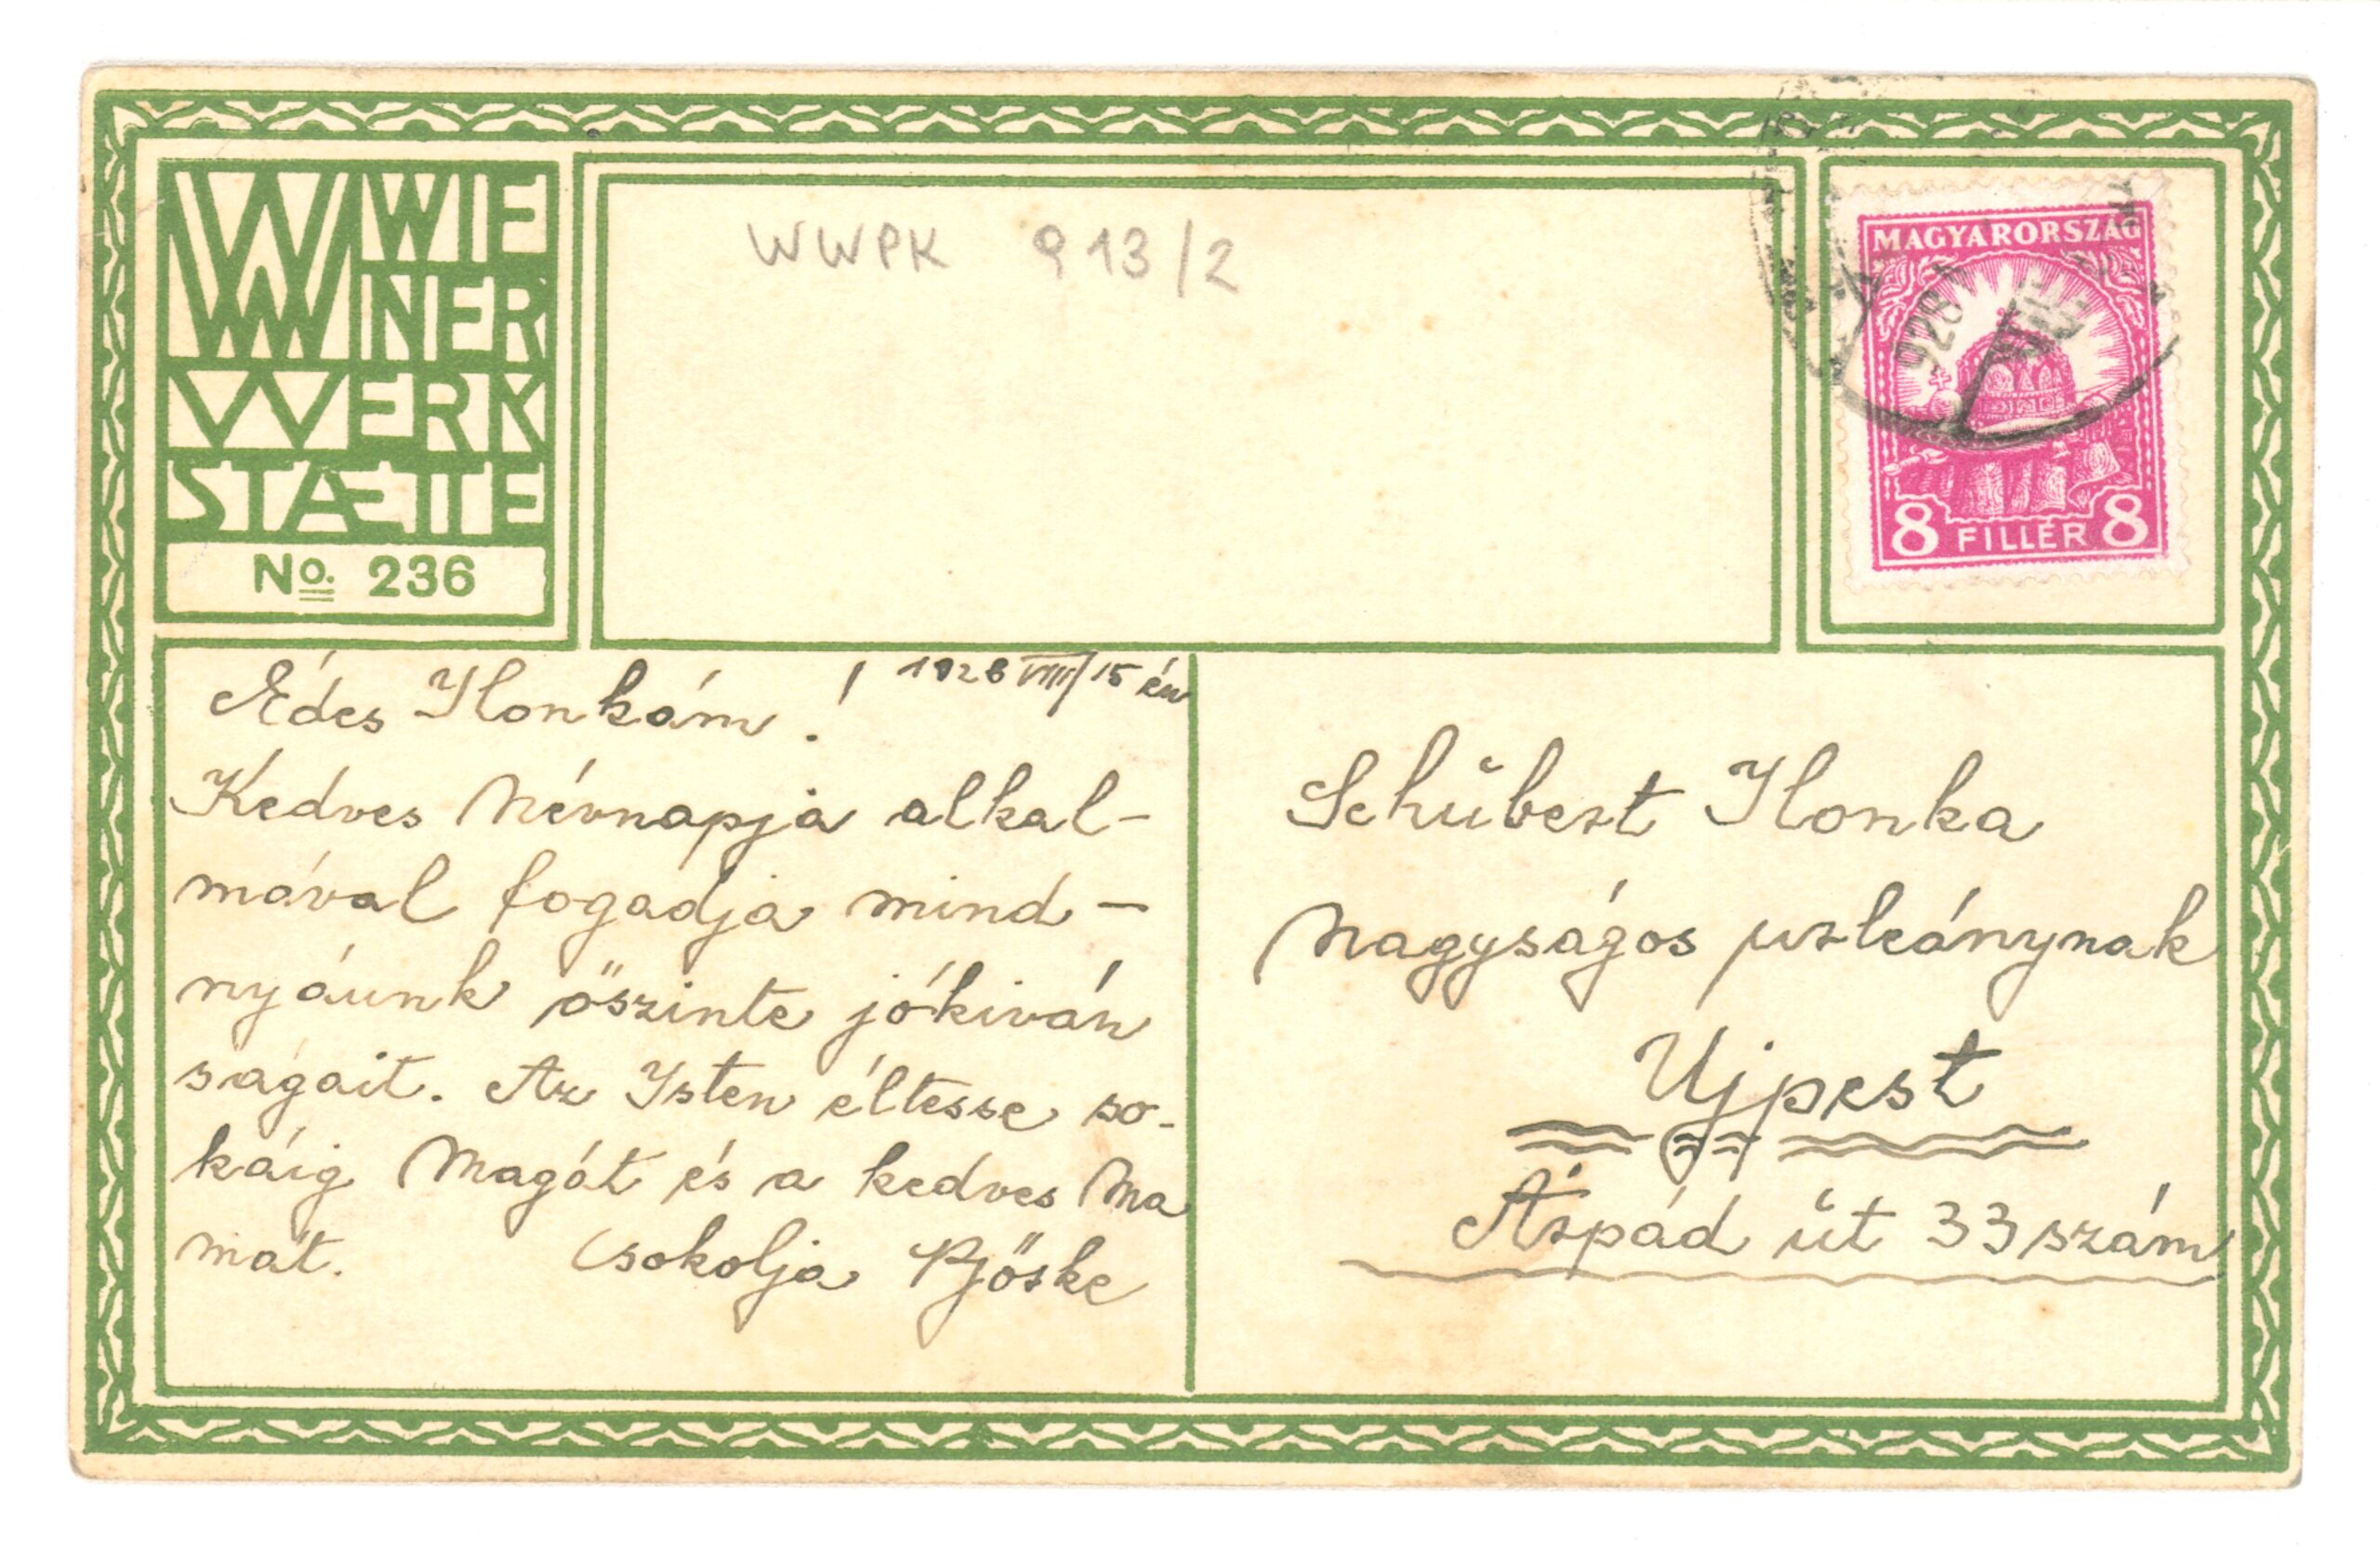 WIE
NER
WERK
STAETTE
No. 236
WWPK 913/2
MAGYARORSZÁG
928
8 FILLÉR 8
Édes Ilonkám! 1928 VIII/15 én
Kedves Névnapja alkal-
mával fogadja mind-
nyáunk őszinte jókiván
ságait. Az Isten éltesse so-
káig Magát és a kedves Ma
mát. Csokolja Böske
Schűbert Ilonka
Nagyságos urleánynak
Ujpest
Árpád űt 33 szám